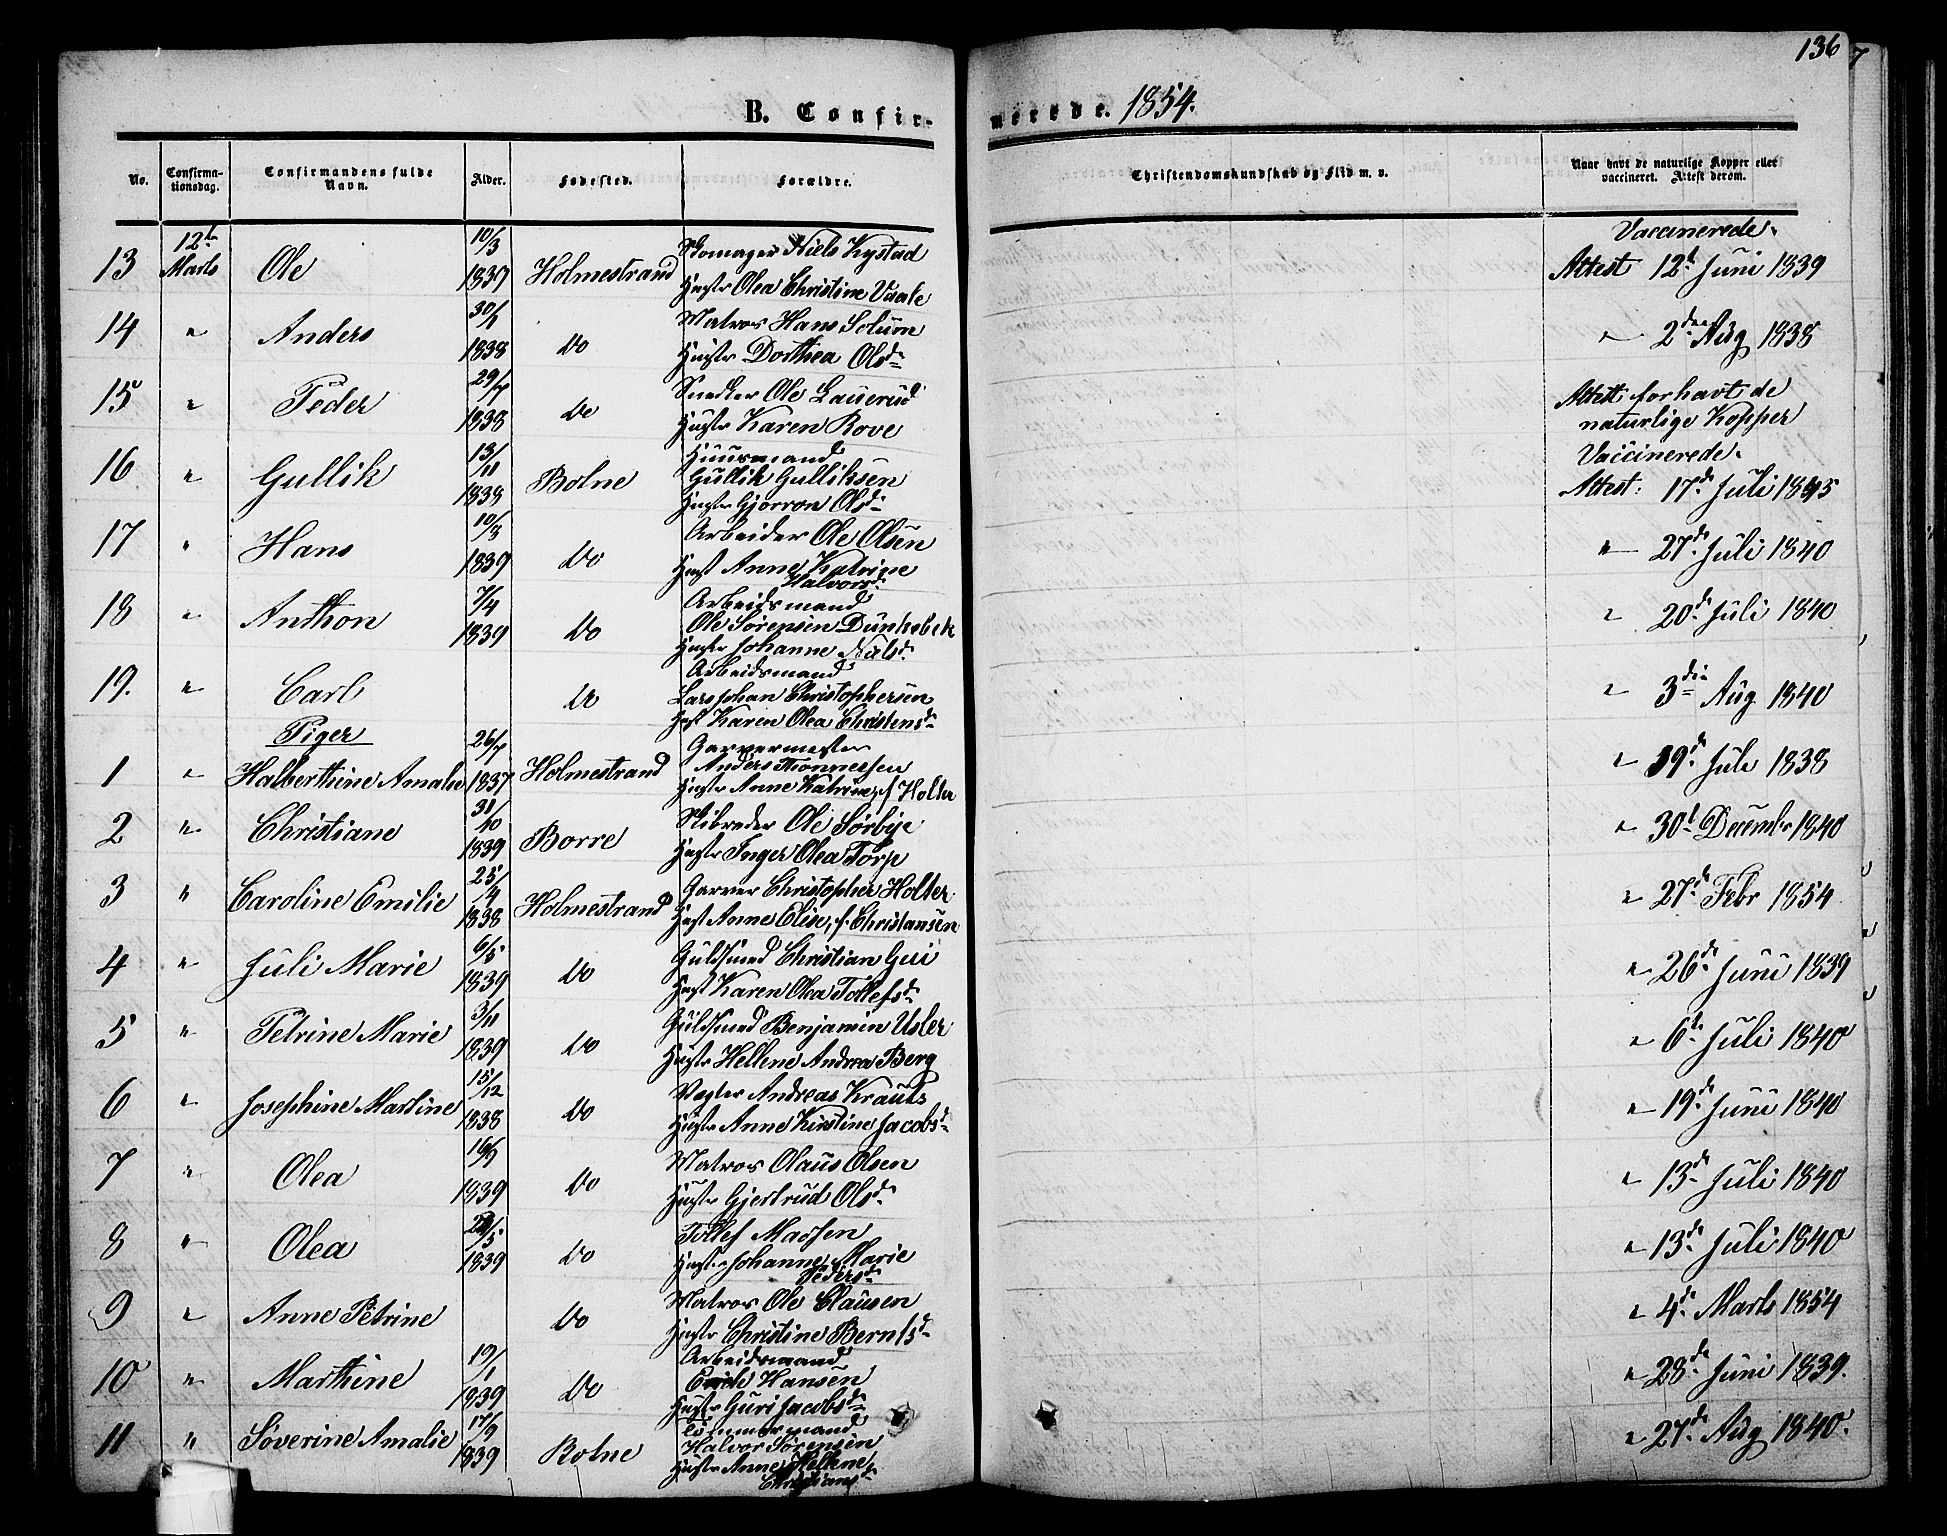 136
7
B. Confir-
merede. 1854.
No.
Confirma-
tionsdag.
Confirmandens fulde
Navn.
Alder.
Fødested.
Forældre.
Christendomskundskab og Flid m. v.
Naar havt de naturlige Kopper eller
vaccineret. Attest derom.
13 12t Marts Ole 10/3 1839 Holmestrand Skomager Niels Kystad
Hustr Olea Christine Vaale
Vaccinerede.
Attest 12t Juni 1839
14 " Anders 30/1 1838 Do Matros Hans Solum
Hustr Dorthea Olsd.
" 2den Aug 1838
15 " Peder 29/7 1838 Do Snedker Ole Lauerud
Hustr Karen Rove
Attest for havt de
naturlige Kopper
16 " Gullik 13/11 1838 Botne Huusmand
Gullik Gulliksen
Hustr Gjorron Olsd.
Vaccinerede.
Attest: 17d. Juli 1845
17 " Hans 10/3 1839 Do Arbeider Ole Olsen
Hust Anne Katrine
Halvorsd.
" 27d. Juli 1840
18 " Anthon 7/4 1839 Do Arbeidsmand
Ole Sørensen Dunkebek
Hustr Johanne Nielsd.
" 20d. Juli 1840
19. " Carl Do Arbeidsmand
Lars Johan Christophersen
Hust Karen Olea Christensd.
" 3die Aug 1840
Piger
1 " Halberthine Amalie 26/7 1837 Holmestrand Garvermester
Anders Thonnesen
Hustr Anne Katrine, f Holter
" 19d. Juli 1838
2 " Christiane 31/10 1839 Borre Stibreder Ole Sørbye
Hustr Inger Olea Torp
" 30t Decembr 1840
3 " Caroline Emilie 25/4 1838 Holmestrand Garver Christopher Holter
Hust Anne Elise, f. Christansen
" 27d. Febr 1854
4 " Juli Marie 6/5 1839 Do Guldsmed Christian Gui
Hust Karen Olea Tollefsd.
" 26d. Juni 1839
5 " Petrine Marie 3/11 1839 Do Guldsmed Benjamin Usler
Hustr Hellene Andrea Berg
" 6t. Juli 1840
6 " Josephine Martine 15/12 1838 Do Vegter Andreas Krauts
Hustr Anne Kirstine Jacobsd.
" 19d. Juni 1840
7 " Olea 16/9 1839 Do Matros Olaus Olsen
Hustr Gjertrud Olsd.
" 13d. Juli 1840
8 " Olea /5 1839 Do Tollef Madsen
Hustr Johanne Marie
Pedersd.
" 13d. Juli 1840
9 " Anne Petrine Do Matros Ole Clausen
Hustr Christine Berntsd.
" 4d. Marts 1854
10 " Marthine 19/1 1839 Do Arbeidsmand
Hansen
Hustr Guri Jacobsd.
" 28d. Juni 1839.
11 " Søverine Amalie 17/9 1839 Botne Tømmermand
Halvor Sørensen
Hustr Anne Hellene
Christiansd.
" 27d. Aug 1840.